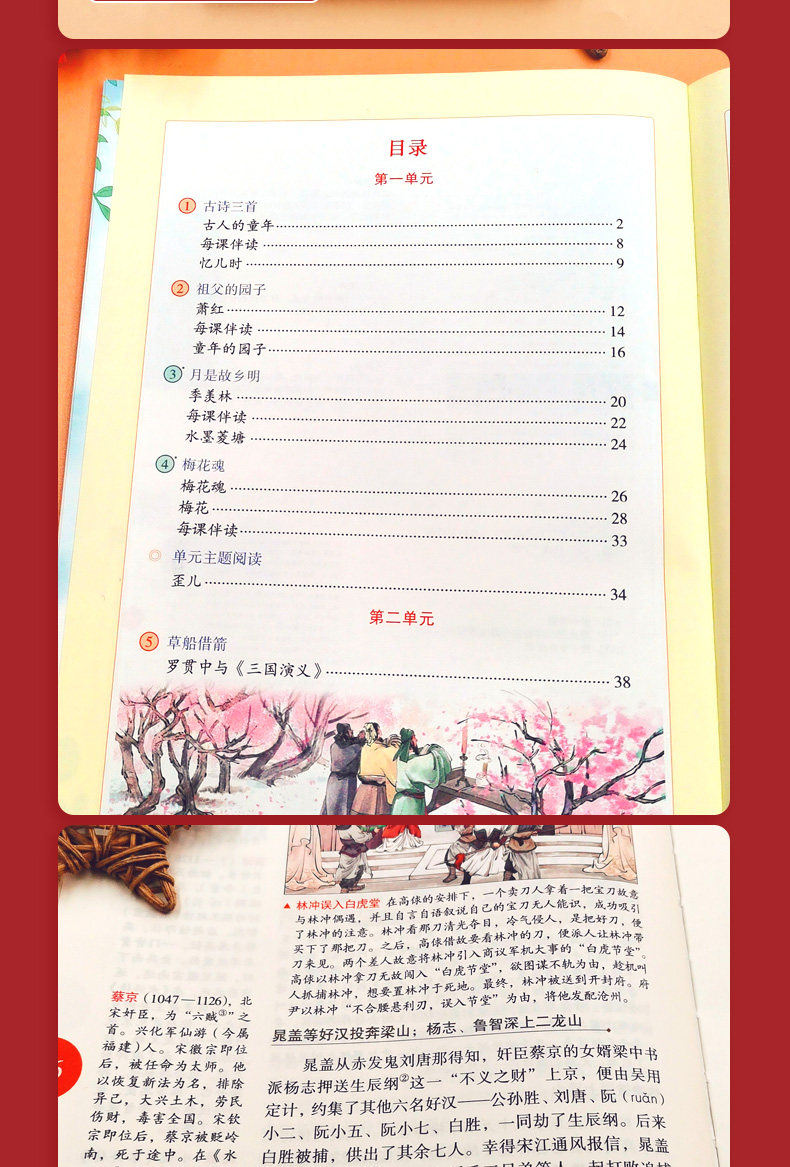 目录
第一单元
1 古诗三首
古人的童年 2
每课伴读 8
忆儿时 9
2 祖父的园子
萧红 12
每课伴读 14
童年的园子 16
3 月是故乡明
季羡林 20
每课伴读 22
水墨菱塘 24
4 梅花魂
梅花魂 26
梅花 28
每课伴读 33
单元主题阅读
歪儿 34
第二单元
5 草船借箭
罗贯中与《三国演义》 38
▲ 林冲误入白虎堂 在高俅的安排下，一个卖刀人拿着一把宝刀故意
与林冲偶遇，并且自言自语叙说自己的宝刀无人能识，成功吸引
了林冲的注意。林冲看那刀清光夺目，冷气侵人，是把好刀，便
买下了那把刀。之后，高俅借故要看林冲的刀，便派人让林冲带
刀来见。两个差人故意将林冲引入商议军机大事的“白虎节堂”。
高俅以林冲拿刀无故闯入“白虎节堂”，欲图谋不轨为由，趁机叫
人抓捕林冲，想要置林冲于死地。最终，林冲被送到开封府。府
尹以林冲“不合腰悬利刃，误入节堂”为由，将他发配沧州。
蔡京（1047—1126），北
宋奸臣，为“六贼③”之
首。兴化军仙游（今属
福建）人。宋徽宗即位
后，被任命为太师。他
以恢复新法为名，排除
异己，大兴土木，劳民
伤财，毒害全国。宋钦
宗即位后，蔡京被贬岭
南，死于途中。在《水
晁盖等好汉投奔梁山；杨志、鲁智深上二龙山
晁盖从赤发鬼刘唐那得知，奸臣蔡京的女婿梁中书
派杨志押送生辰纲②这一“不义之财”上京，便由吴用
定计，约集了其他六名好汉——公孙胜、刘唐、阮（ruǎn）
小二、阮小五、阮小七、白胜，一同劫了生辰纲。后来
白胜被捕，供出了其余七人。幸得宋江通风报信，晁盖